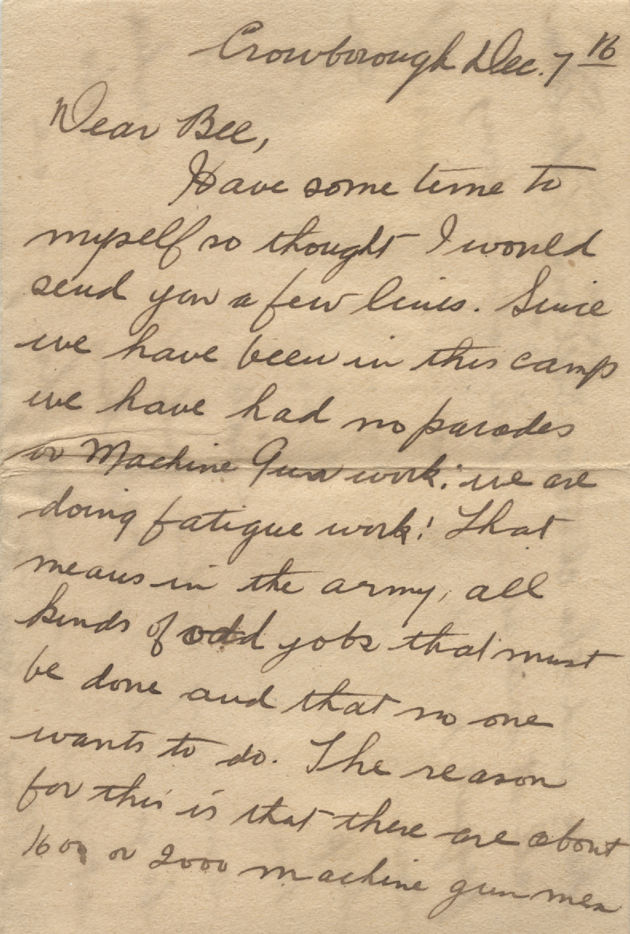 Crowborough Dec. 7 16
Dear Bee,
Have some time to
myself so thought I would
send you a few lines. Since
we have been in this camp
we have had no parades
or Machine Gun work: we are
doing fatigue work! That
means in the army, all
kinds of odd jobs that must
be done and that no one
wants to do. The reason
for this is that there are about
1600 or 2000 machine gun men